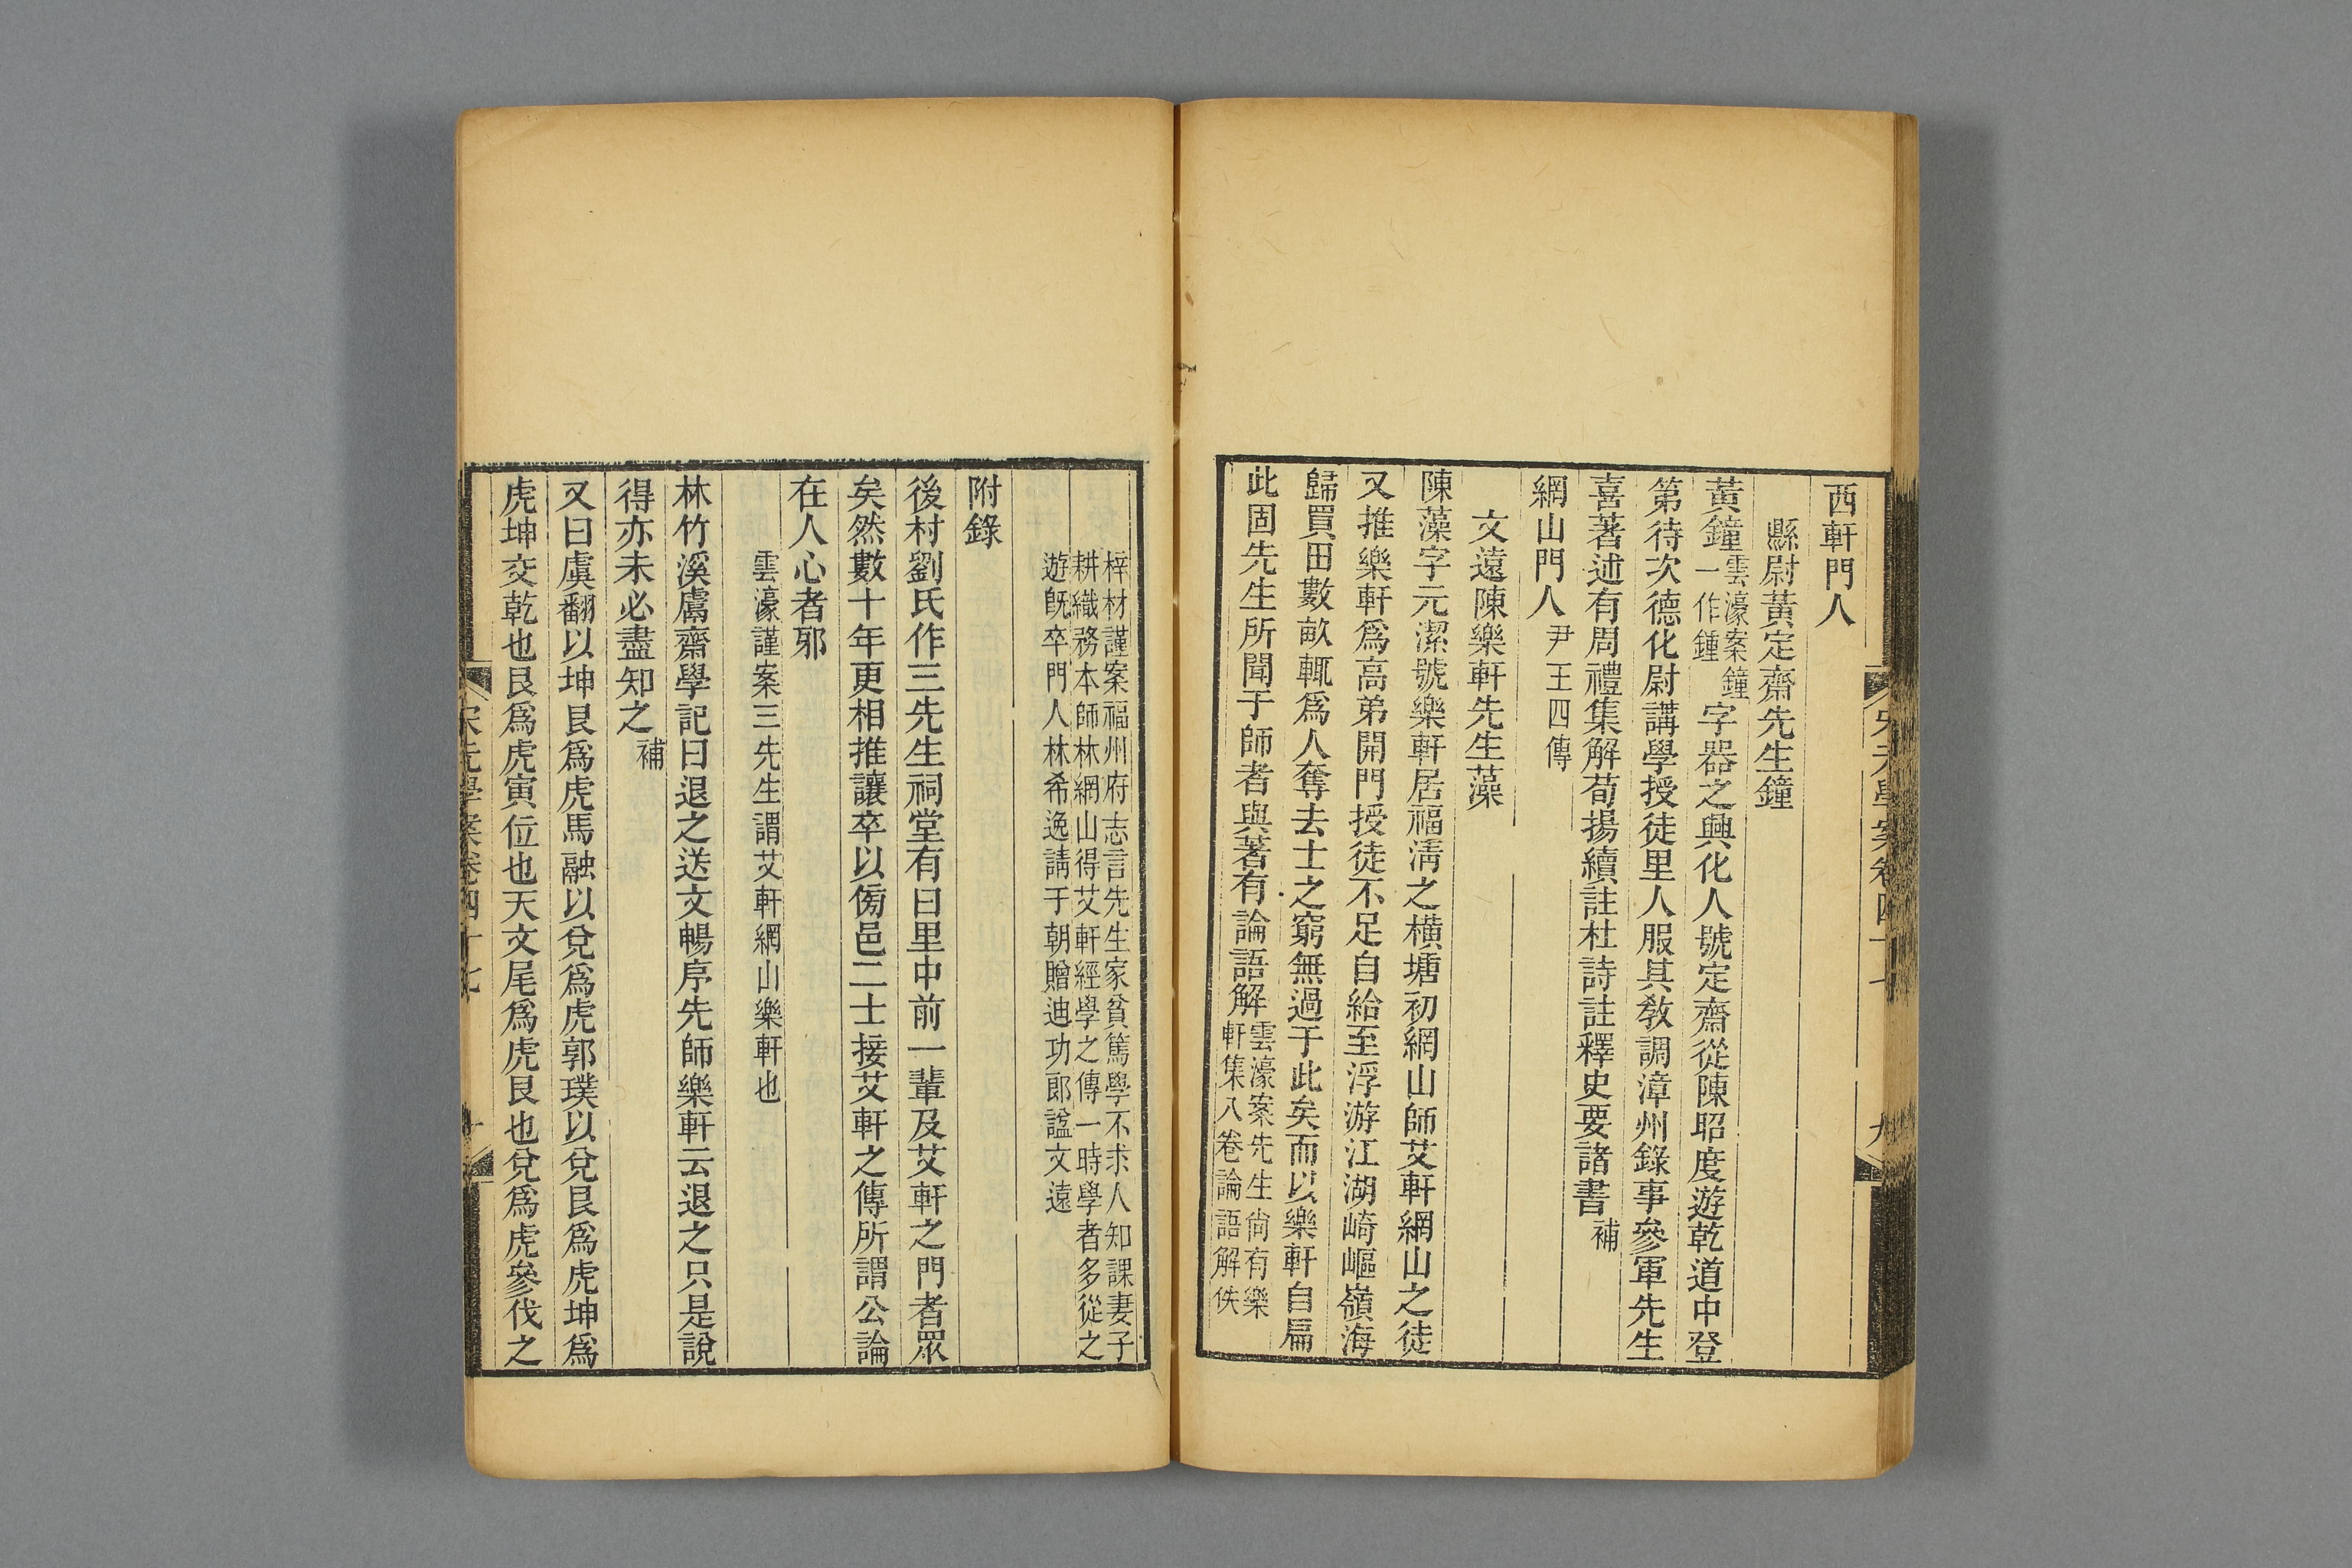 西軒門人
縣尉黃定齋先生鐘
黃鐘雲濠案鐘一作鍾字器之興化人號定齋從陳昭度遊乾道中登
第待次德化尉講學授徒里人服其敎調漳州錄事參軍先生
喜著述有周禮集解荀揚續註杜詩註釋史要諸書補
網山門人尹王四傳
文遠陳樂軒先生藻
陳藻字元潔號樂軒居福淸之橫塘初網山師艾軒網山之徒
又推樂軒爲高弟開門授徒不足自給至浮游江湖崎嶇嶺海
歸買田數畝輒爲人奪去士之窮無過于此矣而以樂軒自扁
此固先生所聞于師者與著有論語解雲濠案先生尙有樂軒集八卷論語解佚
宋元學案卷四十七
九
梓材謹案福州府志言先生家貧篤學不求人知課妻子
耕織務本師林網山得艾軒經學之傳一時學者多從之
遊旣卒門人林希逸請于朝贈迪功郎諡文遠
附錄
後村劉氏作三先生祠堂有曰里中前一輩及艾軒之門者眾
矣然數十年更相推讓卒以傍邑二士接艾軒之傳所謂公論
在人心者邪
雲濠謹案三先生謂艾軒網山樂軒也
林竹溪鬳齋學記曰退之送文暢序先師樂軒云退之只是說
得亦未必盡知之補
又曰虞翻以坤艮爲虎馬融以兌爲虎郭璞以兌艮爲虎坤爲
虎坤交乾也艮爲虎寅位也天文尾爲虎艮也兌爲虎參伐之
宋元學案卷四十七